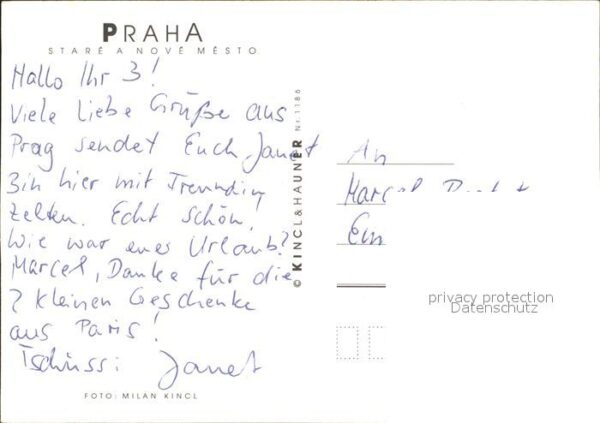 PRAHA
STARÉ A NOVÉ MĚSTO
Hallo Ihr 3!
Viele liebe Grüße aus
Prag sendet Euch Janet
Bin hier mit Freundin
zelten. Echt schön!
Wie war euer Urlaub?
Marcel, Danke für die
2 kleinen Geschenke
aus Paris!
Tschüssi Janet
FOTO: MILAN KINCL
© KINCL & HAUNER Nr. 1186
An
Marcel
privacy protection
Datenschutz